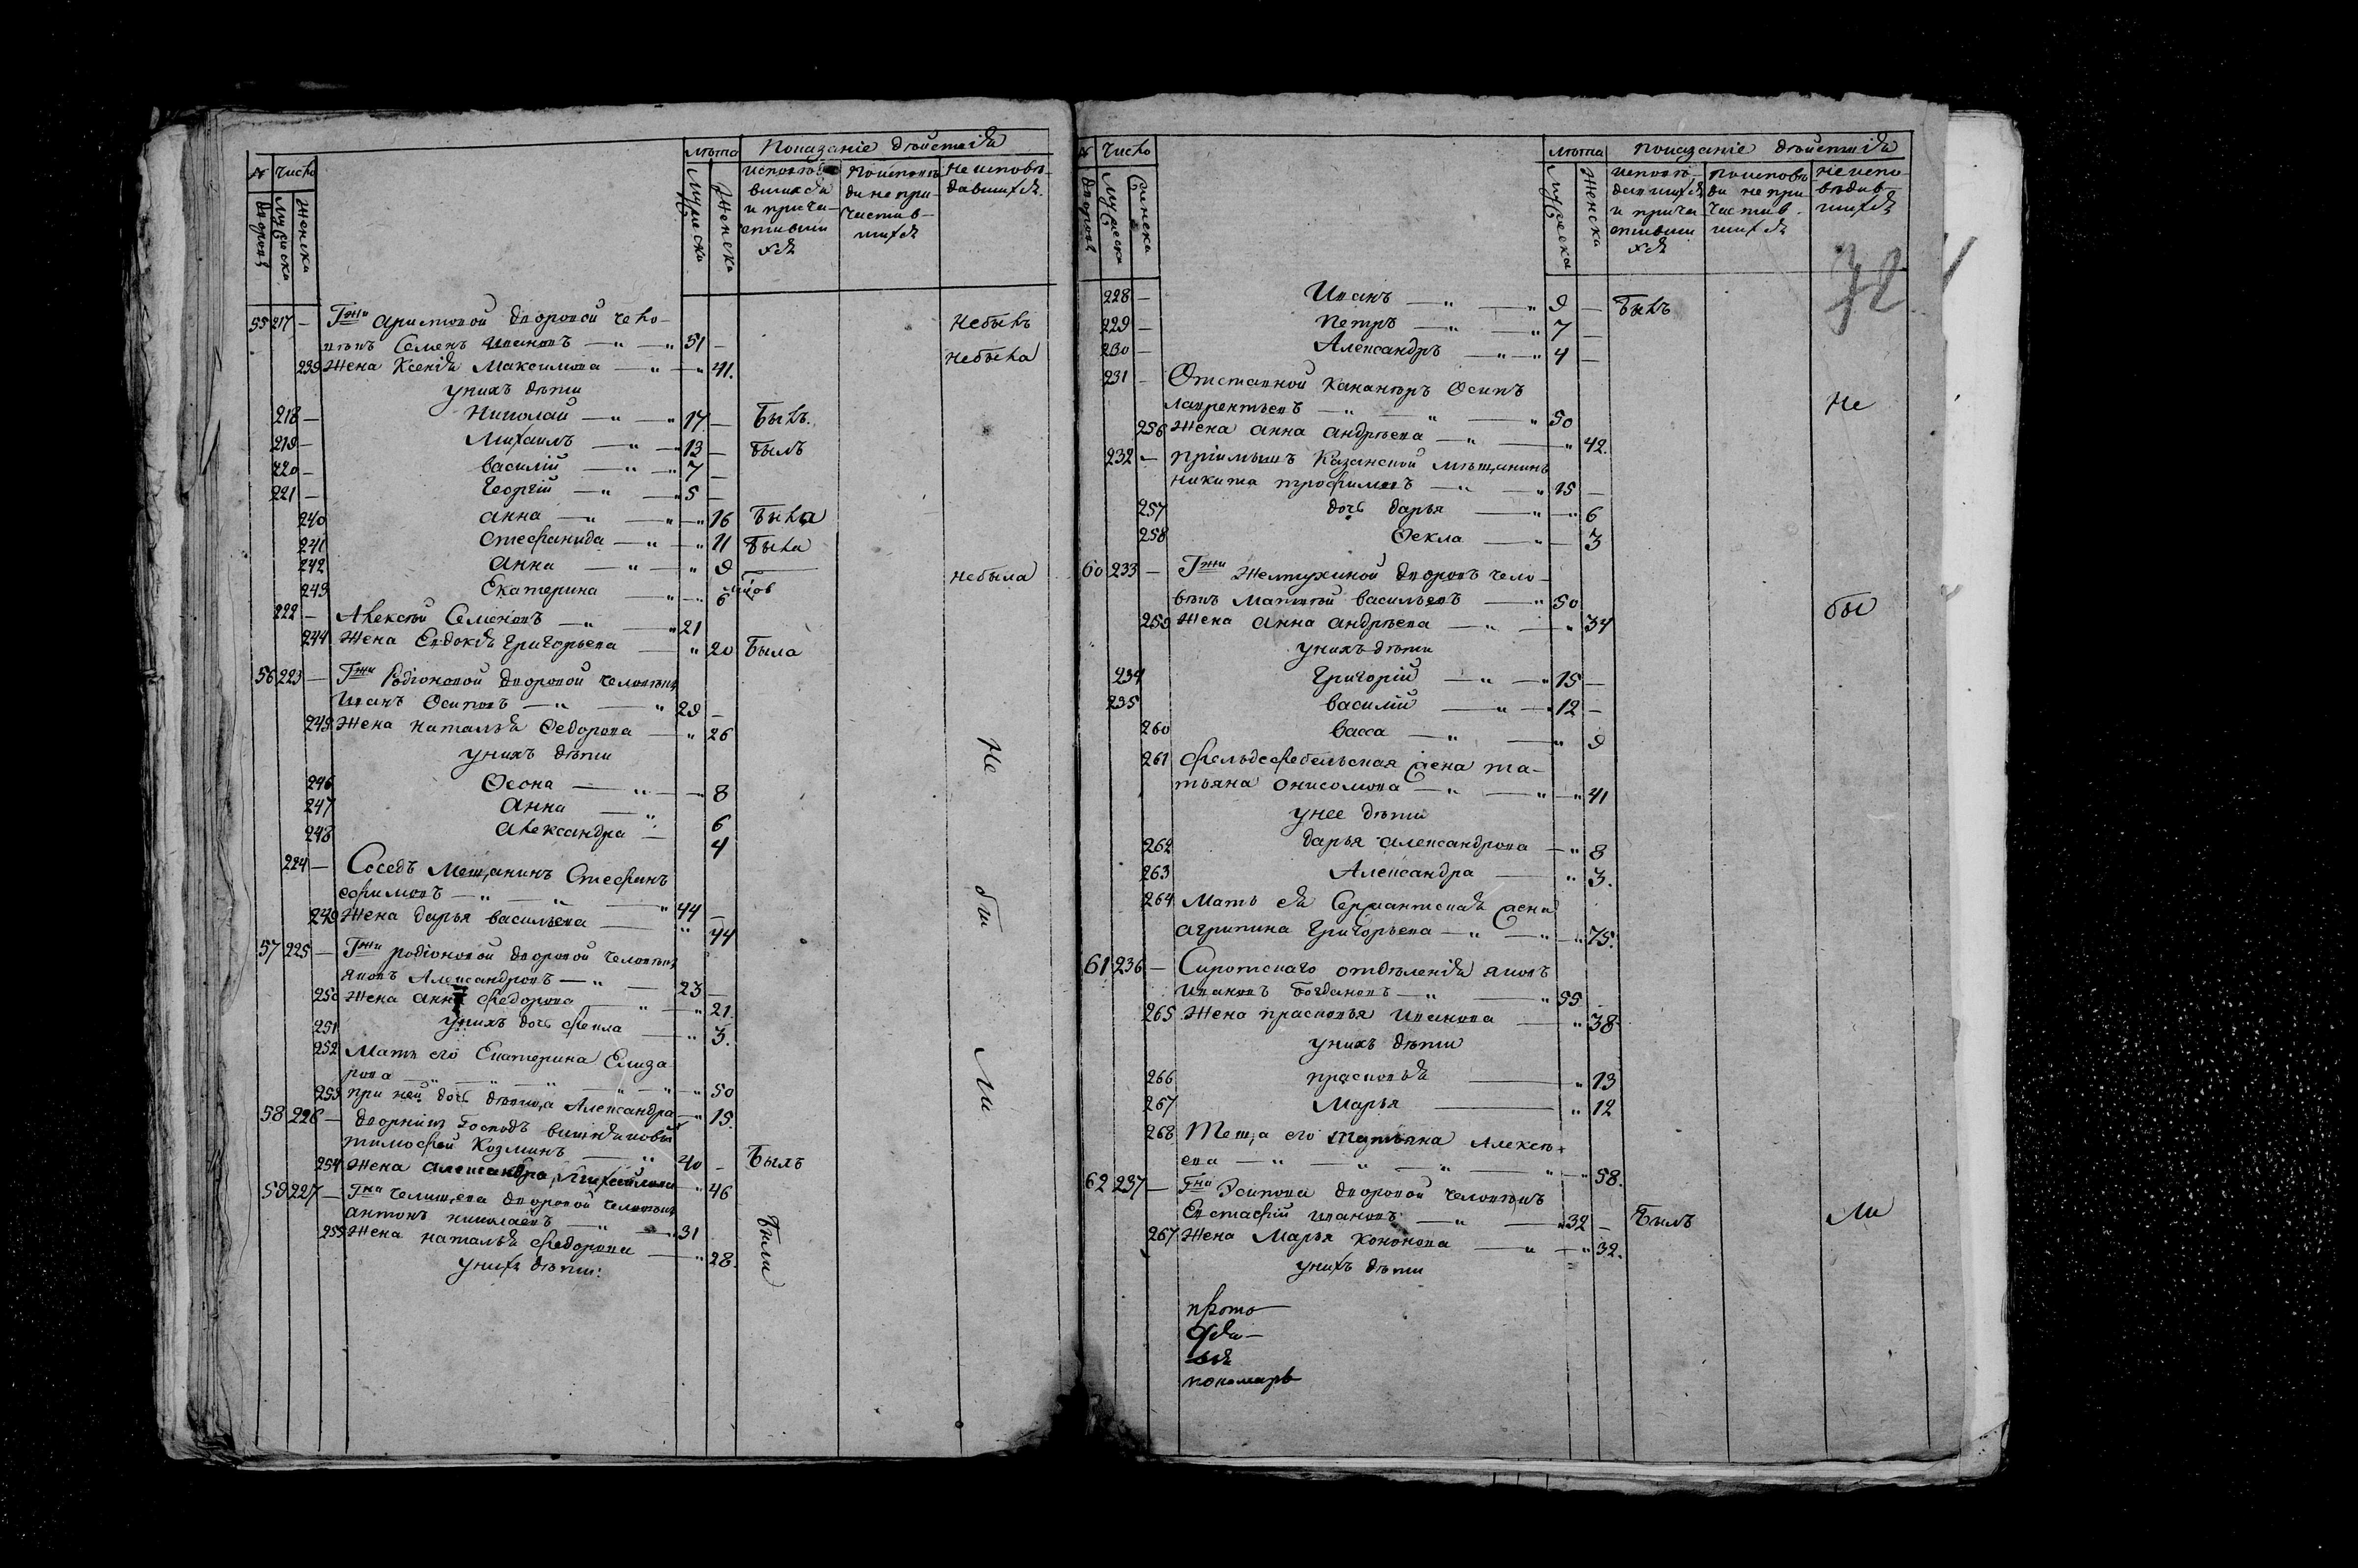 № Число лѣта Показаніе дѣйствія
дворовъ Мужеска Женска Мужеска Женска
исповѣдавшихся и причастившихся
По исповѣди не причастившихся
Не исповѣдавшихся
55 217 — Гжи Аристовой дворовой чело-
вѣкъ Семенъ Ивановъ — „ — „ 51 — небылъ
239 Жена Ксенія Максимова — „ — „ 41. небыла
у нихъ дѣти
218 — Николай — „ — „ 17 — Былъ.
219 — Михаилъ — „ — „ 13 — былъ
220 — Василій — „ — „ 7 —
221 — Георгій — „ — „ 5 —
240 Анна — „ — „ 16 Была
241 Стефанида — „ — „ 11 Была
242 Анна — „ — „ 9
243 Екатерина — „ — „ 6 небыла
222 — Алексѣй Семеновъ — „ — „ 21
244 Жена Евдокія Григорьева — „ 20 Была
56 223 — Гжи Родіоновой дворовой человѣкъ
Иванъ Осиповъ — „ — „ 29 —
245 Жена Наталья Федорова — „ 26
у нихъ дѣти
246 Ѳеона — „ — „ 8
247 Анна — „ 6
248 Александра — 4
Не бы ли
224 — Соседъ Мещанинъ Стефанъ
Ефимовъ — „ — „ — „ 44 —
249 Жена Дарья Васильева — „ 44
57 225 — Гжи Родіоновой дворовой человѣкъ
Яковъ Александровъ — „ — 23 —
250 Жена Анна Федорова — „ — „ 21.
251 у нихъ дочь Фекла — „ 3.
252 Мать его Екатерина Елиза
рова — „ — „ — „ 50
253 при ней дочь дѣвица Александра — „ 15.
58 226 — Дворникъ Господъ
Тимофей Козминъ — „ 40 — Былъ
254 Жена Александра Михайлова — „ 46
59 227 — Гна Челищева дворовой человѣкъ
Антонъ Николаевъ — „ — „ 31
255 Жена Наталья Федорова — „ 28. Были
у нихъ дѣти:
№ Число лѣта Показаніе дѣйствія
дворовъ Мужеска Женска Мужеска Женска
исповѣдавшихся и причастившихся
По исповѣди не причастившихся
не исповѣдавшихся
32
228 — Иванъ — „ — „ 9 — Былъ
229 — Петръ — „ — „ 7 —
230 — Александръ — „ — „ 4 —
231 — Отставной Канонеръ Осипъ
Лаврентьевъ — „ — „ — „ 50 Не
256 Жена Анна Андрѣева — „ — „ 42.
232 — Пріимышъ Казанской мѣщанинъ
Никита Трофимовъ — „ — „ 15 —
257 дочь Дарья — „ — „ 6
258 Ѳекла — „ — 3
60 233 — Гжи Желтухиной дворовъ чело-
вѣкъ Матвѣй Васильевъ — „ 50 бы
259 Жена Анна Андрѣева — „ — „ 34
у нихъ дѣти
234 Григорій — „ — „ 15 —
235 Василій — „ — „ 12 —
260 Васса — „ — „ 9
261 Фельдфебельская жена Та-
тьяна Онисомова — „ — „ — „ 41
у нее дѣти
262 Дарья Александрова — „ 8
263 Александра — „ 3.
264 Мать ея Сержантская жена
Агрипина Григорьева — „ — „ — „ 75.
61 236 — Сиротскаго отдѣленія Яковъ
Ивановъ Богдановъ — „ — „ 55 —
265 Жена Прасковья Иванова — „ 38
у нихъ дѣти
266 Прасковья — „ 13
267 Марья — „ 12
268 Теща его Татьяна Алексѣ-
ева — „ — „ — „ — „ 58.
62 237 — Гна Эсипова дворовой человѣкъ
Евстафій Ивановъ — „ — „ 32 — Былъ ли
267 Жена Марья Кононова — „ — „ 32.
у нихъ дѣти
пономарь